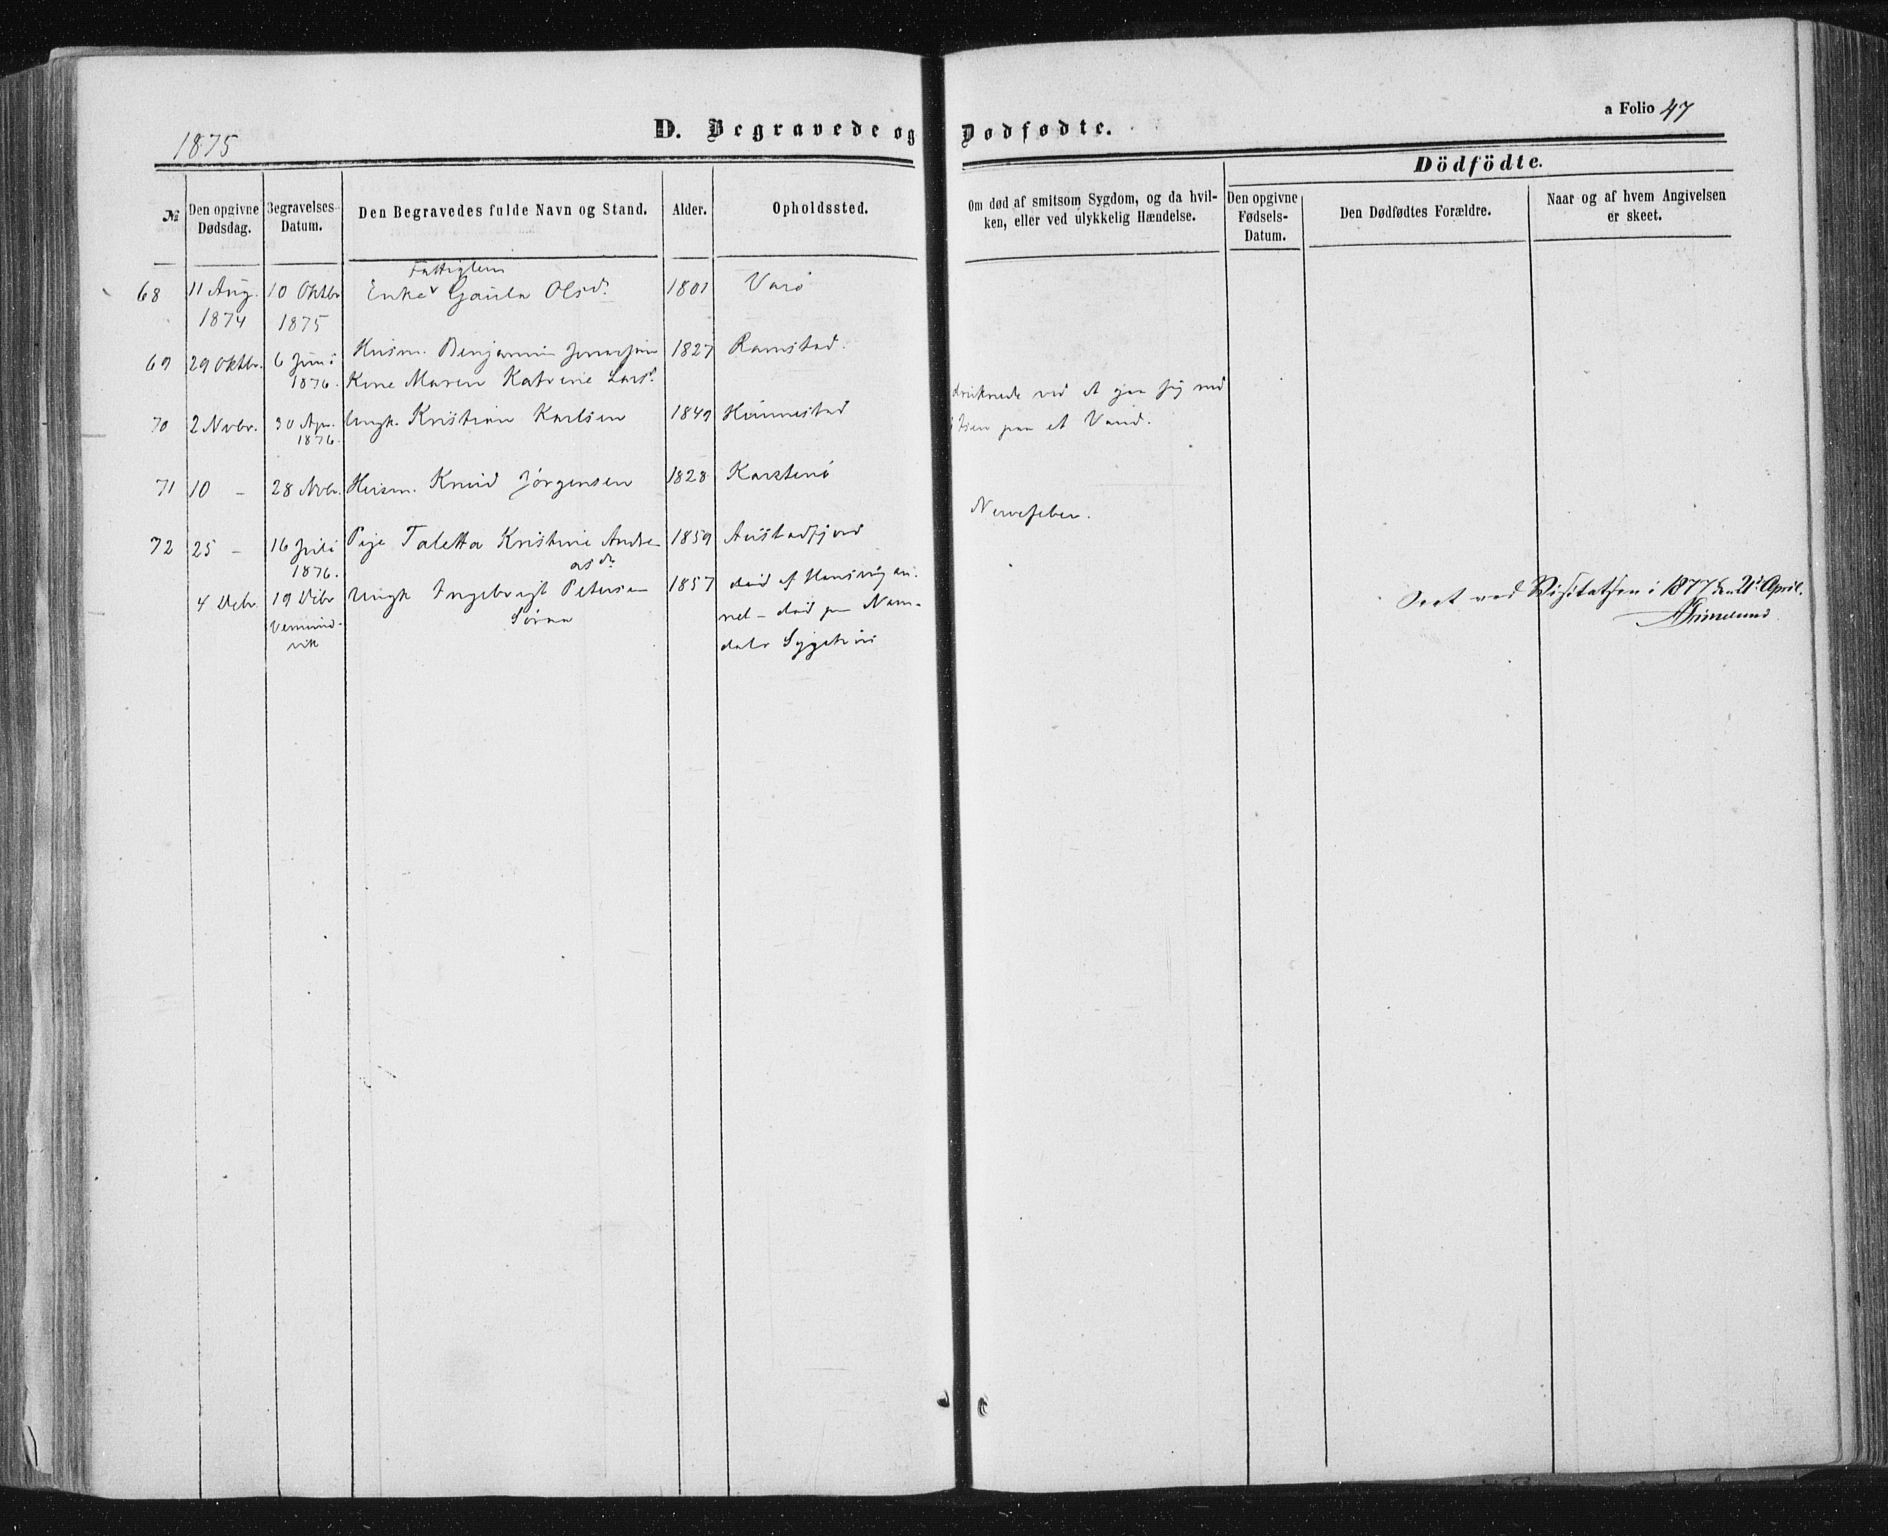 1875
D. Begravede og Dødfødte.
a Folio 47
Dödfödte.
№
Den opgivne Dødsdag.
Begravelses-Datum.
Den Begravedes fulde Navn og Stand.
Alder.
Opholdssted.
Om død af smitsom Sygdom, og da hvil-
ken, eller ved ulykkelig Hændelse.
Den opgivne Fødsels-Datum.
Den Dødfødtes Forældre.
Naar og af hvem Angivelsen
er skeet.
Fattiglem
68 11 Aug. 10 Oktbr Enke Gaula Olsdr. 1801 Varø
1874 1875
69 29 Oktbr. 6 Juni Husm. Benjamin 1827 Ramstad.
1876. Kone Maren Katrine Larsd.
druknede ved at gaa sig ned
70 2 Novbr. 30 Apr. Ungk. Kristian Karlsen 1849 Hunnestad
1876. Isen paa et Vand.
71 10 - 28 Nvbr. Husm. Knud Jørgensen 1828 Karstenø
Nervefeber.
72 25 - 16 Juli Pige Taletta Kristine Andre- 1859 Austadfjord
1876. asdr.
4 Debr 19 Debr Ungk Ingebrigt Petersen 1857 død af
Vemund- Søraa - død paa Nam-
vik dals Sygehus
Seet ved Visitatsen i 1877 den 21d April.